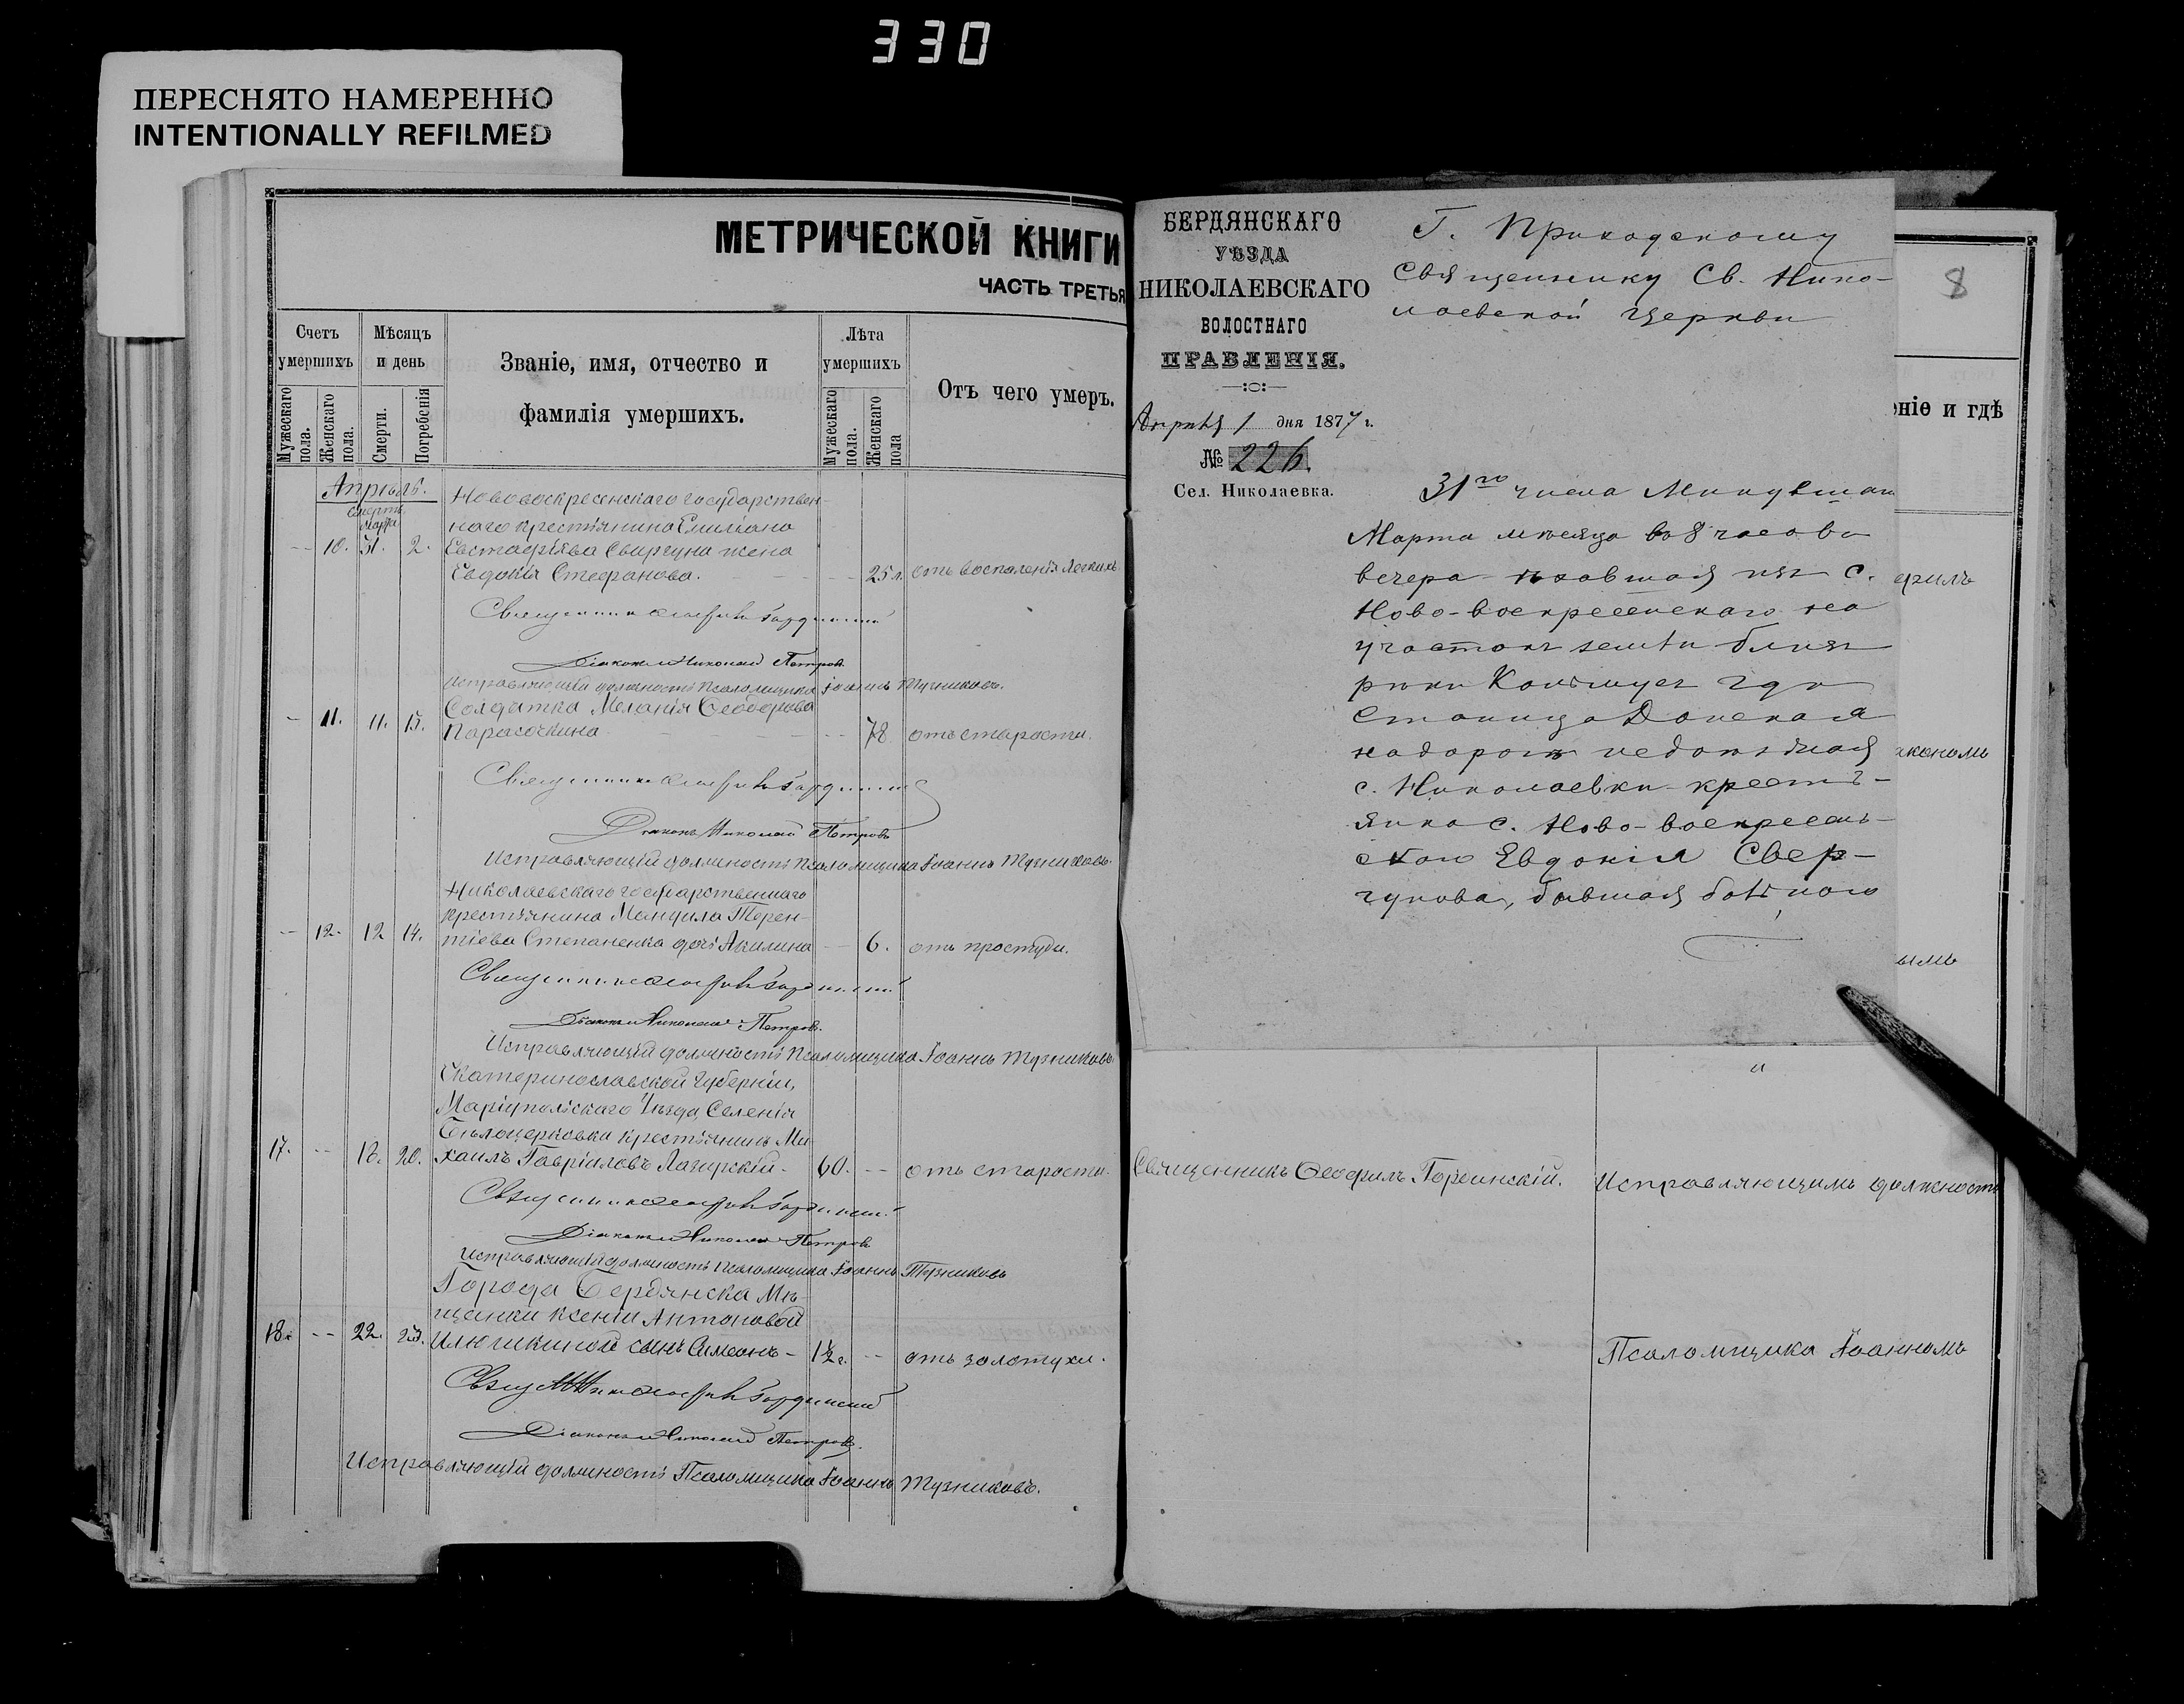 330
ПЕРЕСНЯТО НАМЕРЕННО
INTENTIONALLY REFILMED
МЕТРИЧЕСКОЙ КНИГИ
ЧАСТЬ ТРЕТЬЯ
Счетъ умершихъ
Мужескаго пола.
Женскаго пола.
Мѣсяцъ и день
Смерти.
Погребенія
Званіе, имя, отчество и
фамилія умершихъ.
Лѣта умершихъ
Мужескаго пола.
Женскаго пола
Отъ чего умеръ.
Апрѣль.
Смерть
Марта
Нововоскресенскаго государствен-
наго крестьянина Емиліана
-- 10. 31. 2. Евстафіева Свиргуна жена
Евдокія Стефанова. 25 л. отъ воспаленія легкихъ
Священникъ Ѳеофилъ
Діаконъ Николай Петровъ
Исправляющій должность Псаломщика Іоаннъ Тузниковъ.
Солдатка Меланія Ѳеодорова
- 11. 11. 13. Парасочкина 78 отъ старости.
Священникъ Ѳеофилъ
Діаконъ Николай Петровъ
Исправляющій должность Псаломщика Іоаннъ Тузниковъ.
Николаевскаго государственнаго
крестьянина Мануила Терен-
-- 12. 12 14. тіева Степаненка дочь Акилина 6. отъ простуды.
Священникъ Ѳеофилъ
Діаконъ Николай Петровъ.
Исправляющій должность Псаломщика Іоаннъ Тузниковъ
Екатеринославской губерніи,
Маріупольскаго Уѣзда, Селенія
Бѣлоцерковки крестьянинъ Ми-
17. -- 18. 20. хаилъ Гавріиловъ Лазирскій - 60. -- отъ старости.
Священникъ Ѳеофилъ
Діаконъ Николай Петровъ
Исправляющій должность Псаломщика Іоаннъ Тузниковъ
Города Бердянска Мѣ-
щанки Ксеніи Антоновой
18. -- 22. 23. Илюшкиной сынъ Симеонъ - 1½ г. -- отъ золотухи.
Священникъ Ѳеофилъ
Діаконъ Николай Петровъ.
Исправляющій должность Псаломщика Іоаннъ Тузниковъ.
БЕРДЯНСКАГО
УѢЗДА
НИКОЛАЕВСКАГО
ВОЛОСТНАГО
ПРАВЛЕНІЯ.
Апрѣля 1 дня 1877 г.
№ 226.
Сел. Николаевка.
Г. Приходскому
Священнику Св. Нико-
лаевской Церкви
31го числа Минувшаго
Марта мѣсяца въ 8 часовъ
вечера ѣхавшая изъ с.
Ново-воскресенскаго на
участокъ земли близъ
рѣки Кальміусъ гдѣ
Станица Донская
на дорогѣ недоѣзжая
с. Николаевки крестъ-
янка с. Ново-воскресен-
скаго Евдокія Свер-
гунова, бывшая больною
8
еніе и гдѣ
офилъ
акономъ
ымъ
"
Священникъ Ѳеофилъ Исправляющимъ должность
Псаломщика Іоанномъ